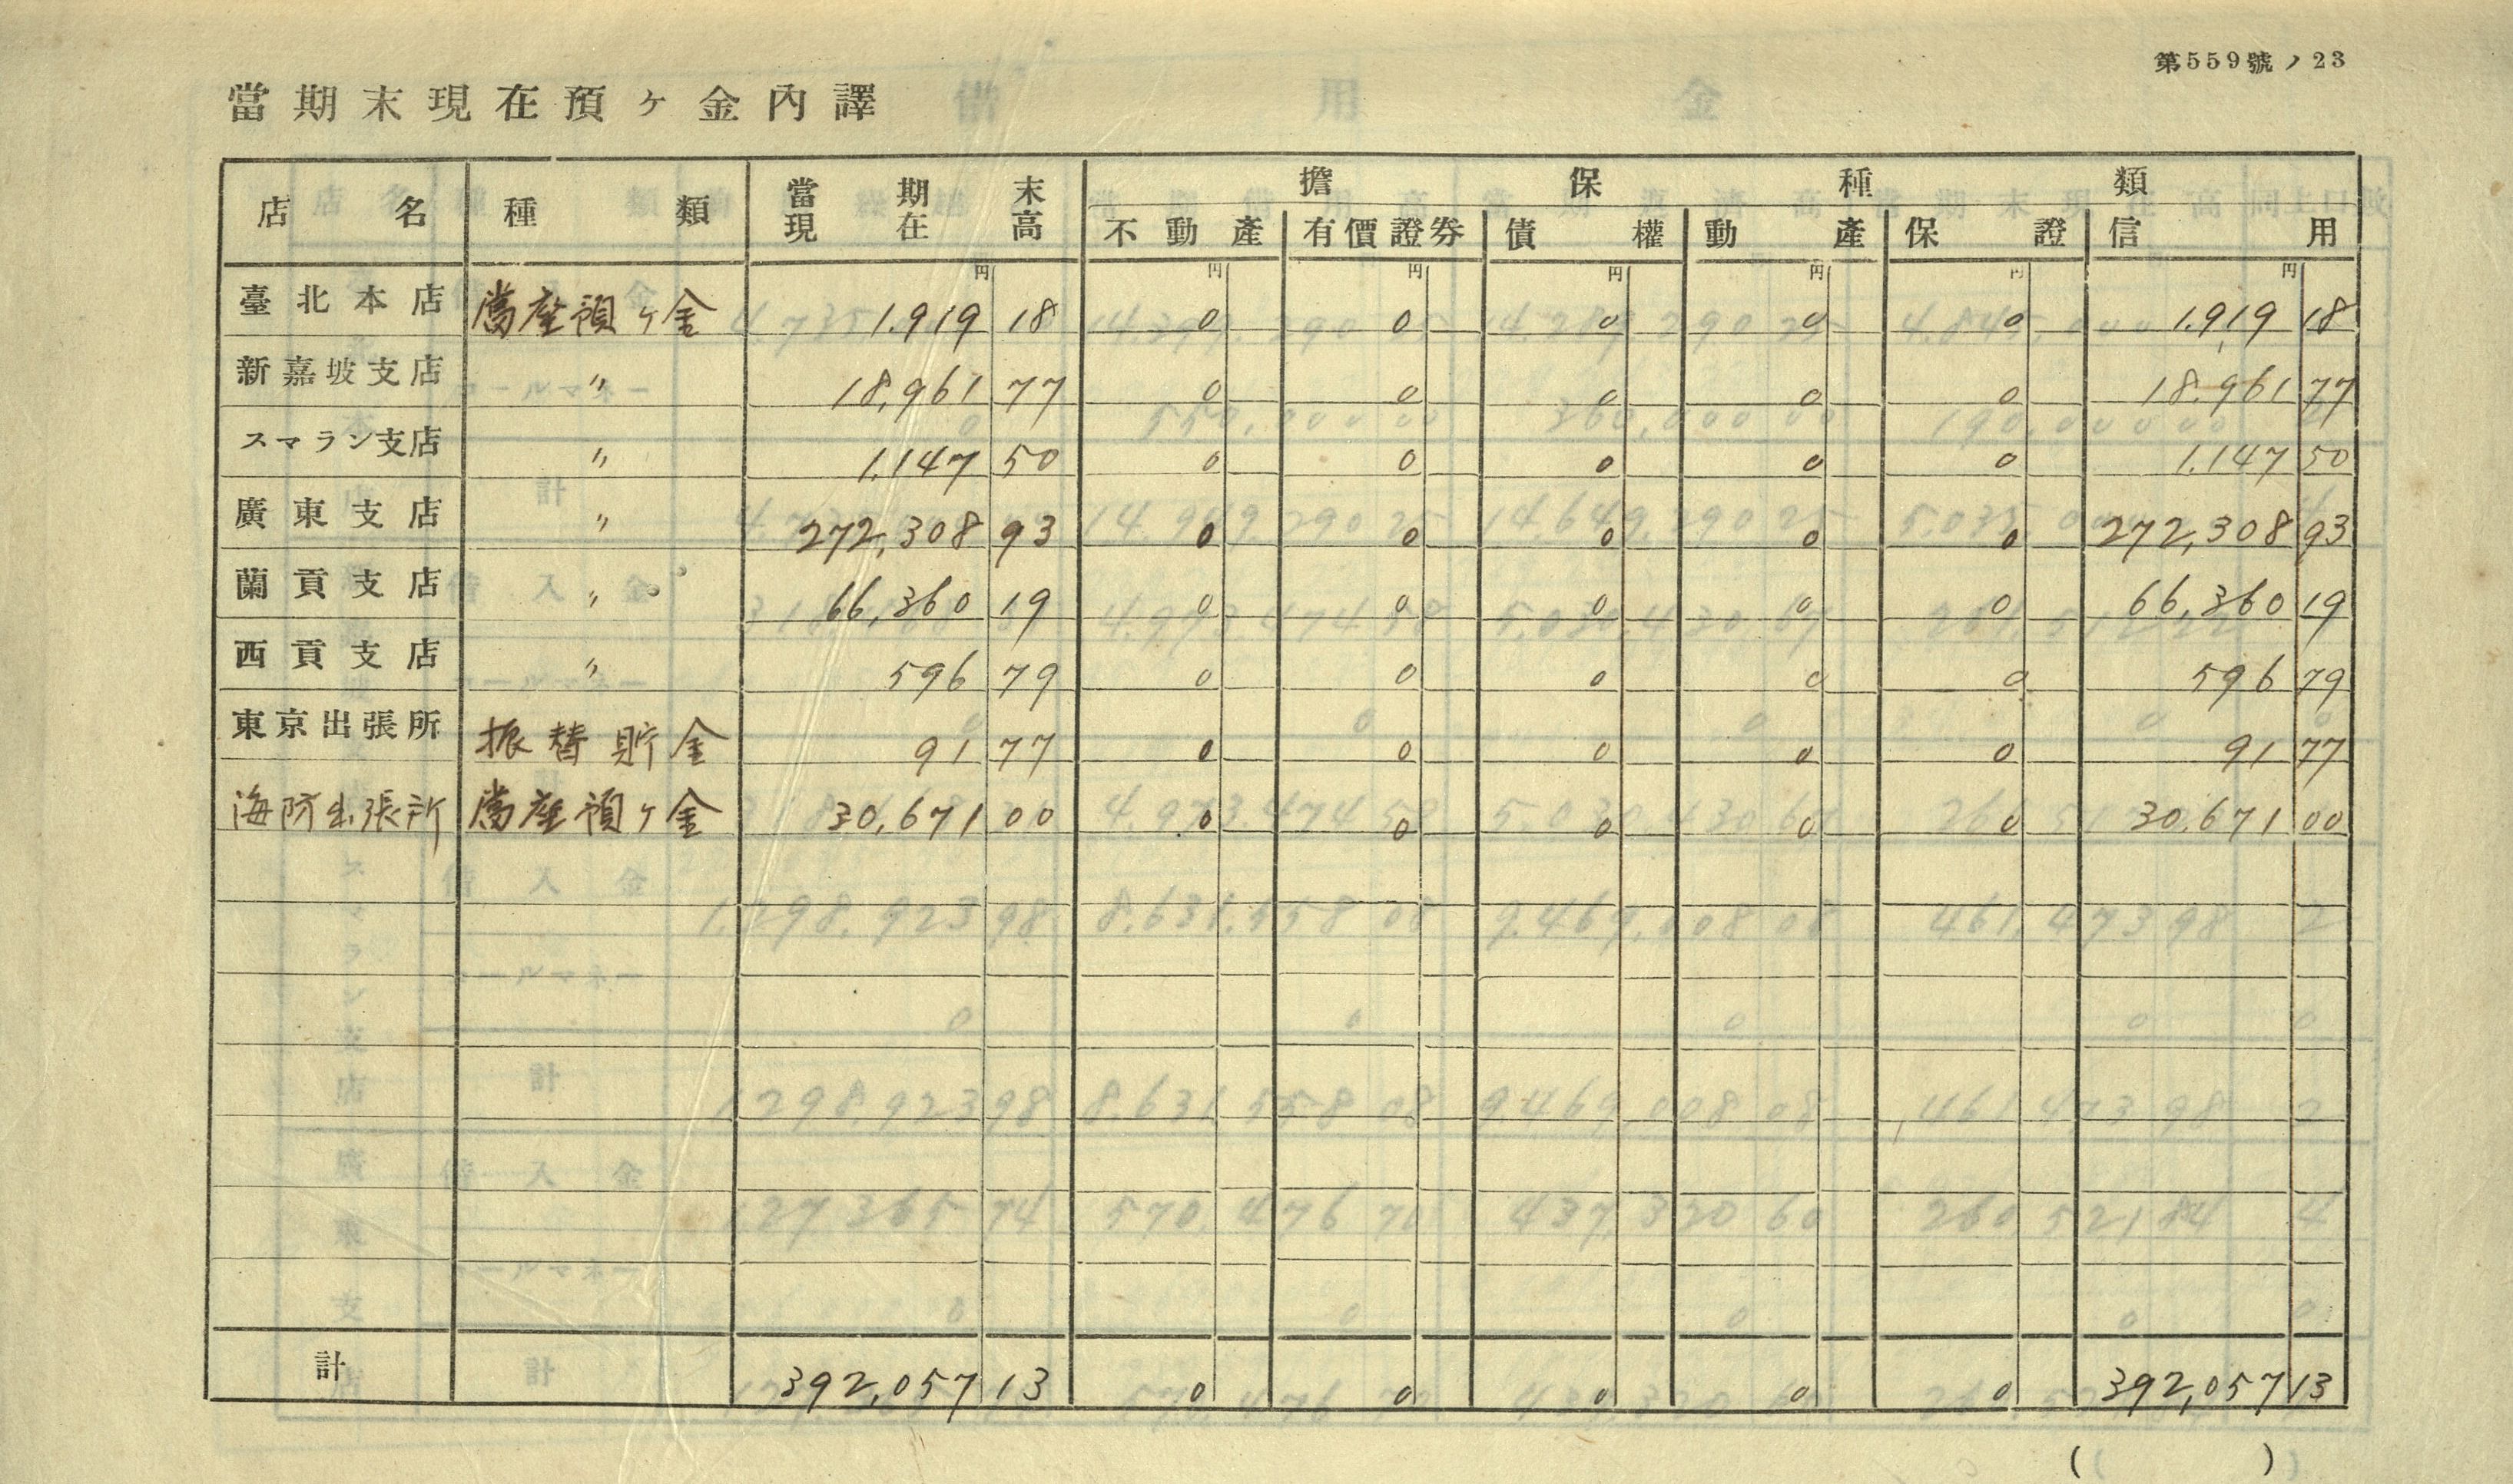 第559號ノ23
當期末現在預ヶ金內譯
店名 種類 當期末現在高 擔保種類
不動產 有價證券 債權 動產 保證 信用
円 円 円 円 円 円 円
臺北本店 當座預ヶ金 1,919 18 0 0 0 0 0 1,919 18
新嘉坡支店 〃 18,961 77 0 0 0 0 0 18,961 77
スマラン支店 〃 1,147 50 0 0 0 0 0 1,147 50
廣東支店 〃 272,308 93 0 0 0 0 0 272,308 93
蘭貢支店 〃 66,360 19 0 0 0 0 0 66,360 19
西貢支店 〃 596 79 0 0 0 0 0 596 79
東京出張所 振替貯金 91 77 0 0 0 0 0 91 77
海防出張所 當座預ヶ金 30,671 00 0 0 0 0 0 30,671 00
計 392,057 13 0 0 0 0 0 392,057 13
( )